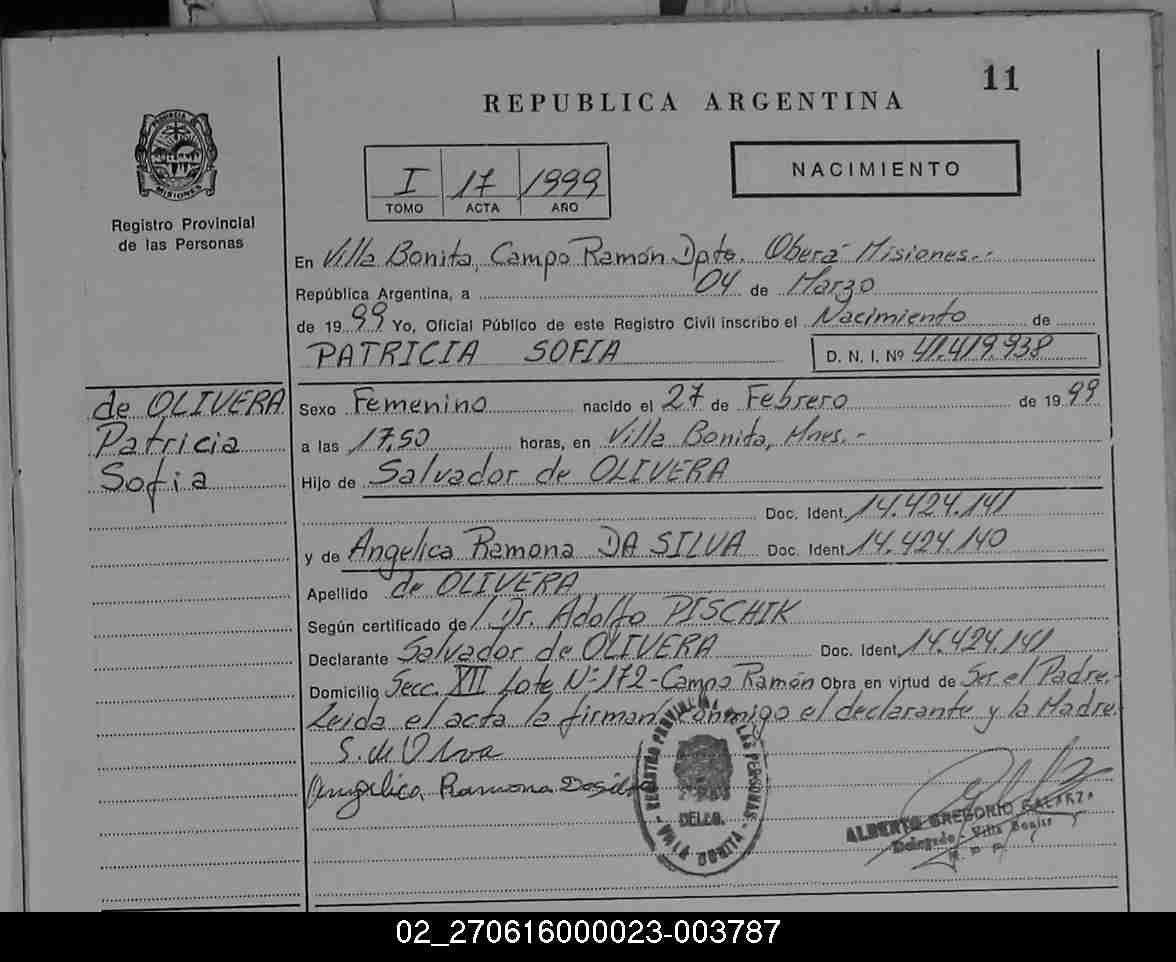 11
REPUBLICA ARGENTINA
PROVINCIA DE MISIONES
Registro Provincial
de las Personas
I 17 1999
TOMO ACTA AÑO
NACIMIENTO
En Villa Bonita, Campo Ramón Dpto. Oberá Misiones.-
República Argentina, a 04 de Marzo
de 1999 Yo, Oficial Público de este Registro Civil inscribo el Nacimiento de
PATRICIA SOFIA D. N. I. Nº 41.419.938
de OLIVERA
Patricia
Sofia
Sexo Femenino nacido el 27 de Febrero de 1999
a las 17,50 horas, en Villa Bonita, Mnes.-
Hijo de Salvador de OLIVERA
Doc. Ident. 14.424.141
y de Angelica Ramona DA SILVA Doc. Ident 14.424.140
Apellido de OLIVERA
Según certificado de Dr. Adolfo PISCHIK
Declarante Salvador de OLIVERA Doc. Ident. 14.424.141
Domicilio Secc. XII Lote Nº 172-Campo Ramón Obra en virtud de Ser el Padre.-
Leida el acta la firman conmigo el declarante y la Madre.
Angelica Ramona Dasilva
REGISTRO PROVINCIAL DE LAS PERSONAS
DELEG.
ALBERTO GREGORIO GALARZA
Delegado - Villa Bonita
02_270616000023-003787